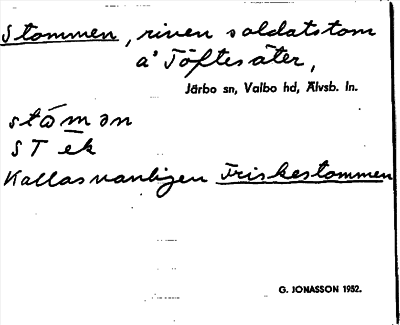 Stommen, riven soldatstom
a' Töftesäter,
Järbo sn, Valbo hd, Älvsb. ln.
ståmən
ST ek
Kallas vanligen Friskestommen
G. JONASSON 1952.